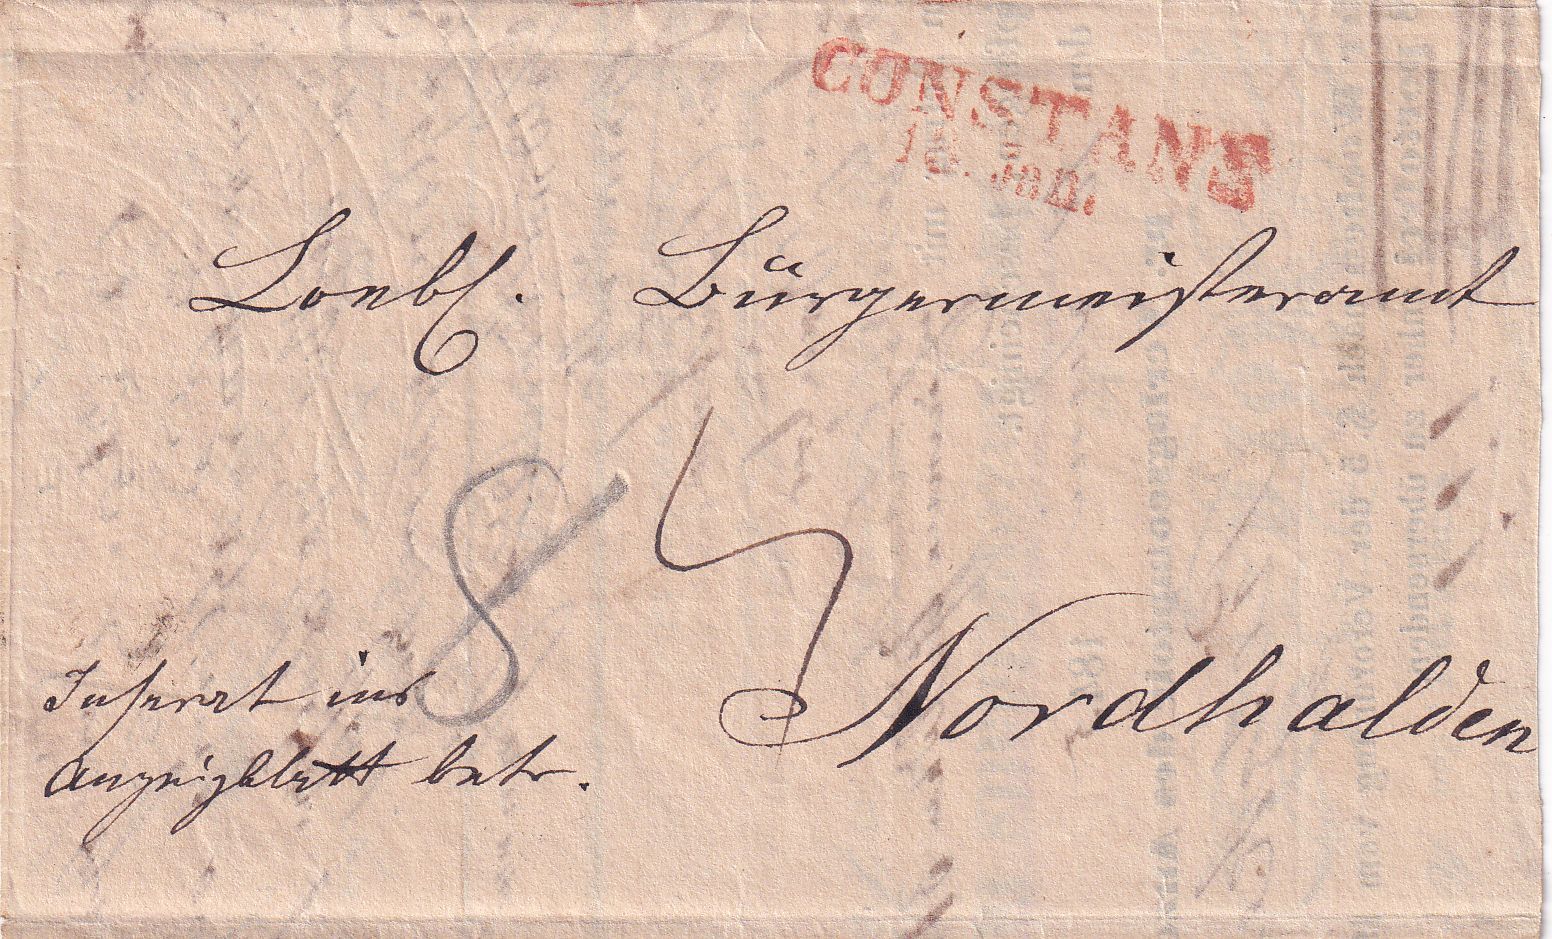 CONSTANS
18. Jan.
Loebl. Bürgermeisteramt
8
Nordhalden
Inserat ins
Anzeigblatt betr.